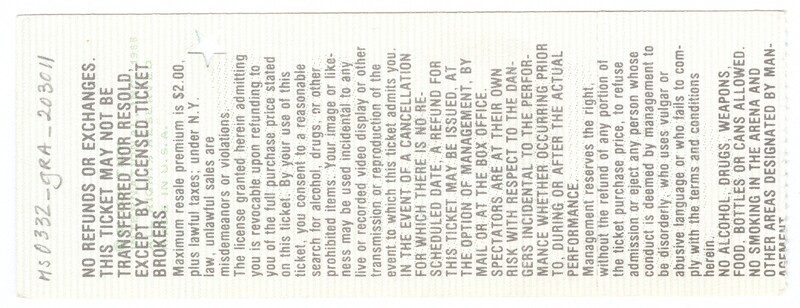 MS0332-gRA-203011
NO REFUNDS OR EXCHANGES.
THIS TICKET MAY NOT BE
TRANSFERRED NOR RESOLD,
EXCEPT BY LICENSED TICKET
BROKERS.
IN U.S.A.
Maximum resale premium is $2.00,
plus lawful taxes; under N.Y.
law, unlawful sales are
misdemeanors or violations.
The license granted herein admitting
you is revocable upon refunding to
you of the full purchase price stated
on this ticket. By your use of this
ticket, you consent to a reasonable
search for alcohol, drugs, or other
prohibited items. Your image or like-
ness may be used incidental to any
live or recorded video display or other
transmission or reproduction of the
event to which this ticket admits you.
IN THE EVENT OF A CANCELLATION
FOR WHICH THERE IS NO RE-
SCHEDULED DATE, A REFUND FOR
THIS TICKET MAY BE ISSUED, AT
THE OPTION OF MANAGEMENT, BY
MAIL OR AT THE BOX OFFICE.
SPECTATORS ARE AT THEIR OWN
RISK WITH RESPECT TO THE DAN-
GERS INCIDENTAL TO THE PERFOR-
MANCE WHETHER OCCURRING PRIOR
TO, DURING OR AFTER THE ACTUAL
PERFORMANCE.
Management reserves the right,
without the refund of any portion of
the ticket purchase price, to refuse
admission or eject any person whose
conduct is deemed by management to
be disorderly, who uses vulgar or
abusive language or who fails to com-
ply with the terms and conditions
herein.
NO ALCOHOL, DRUGS, WEAPONS,
FOOD, BOTTLES OR CANS ALLOWED.
NO SMOKING IN THE ARENA AND
OTHER AREAS DESIGNATED BY MAN-
AGEMENT.